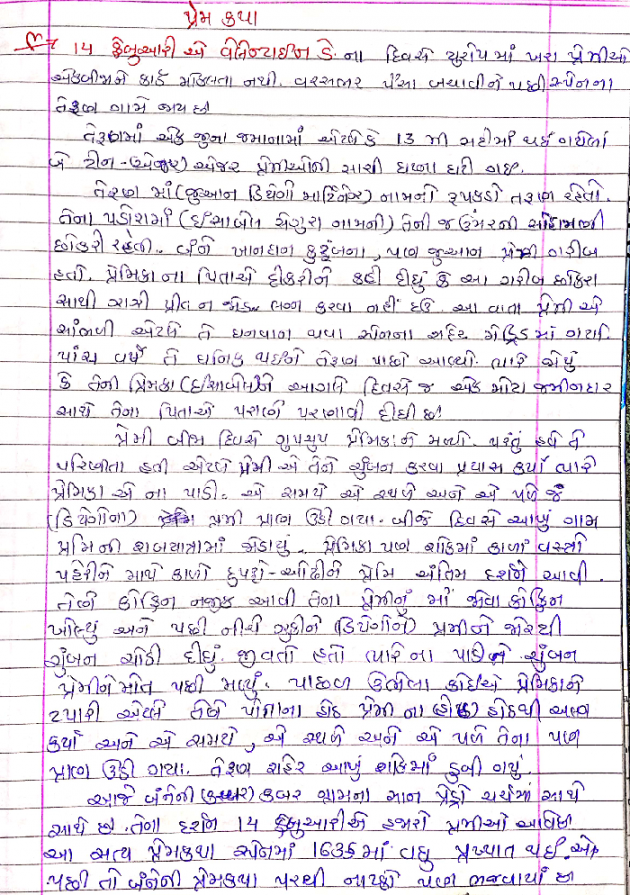 પ્રેમ કથા
14 ફેબ્રુઆરી એ વેલેન્ટાઈન ડે ના દિવસે યુરોપ માં ખરા પ્રેમીઓ
એકબીજાને કાર્ડ મોકલતા નથી. વરસભર પૈસા બચાવીને પછી સ્પેનના
તેરૂણ ગામે જાય છે
તેરૂણમાં એક જુના જમાનામાં એટલે કે 13 મી સદીમાં થઈ ગયેલાં
બે ટીન-એજર પ્રેમીઓની સાચી ઘટના ઘટી ગઈ.
તેરૂણ માં (જુઆન ડિયેગો માર્ટિનેઝ) નામનો રૂપકડો તરૂણ રહેતો.
તેના પડોશમાં (ઈસાબેલ સેગુરા નામની) તેની જ ઉંમરની સોહામણી
છોકરી રહેતી. બંને ખાનદાન કુટુંબના, પણ જુઆન પ્રેમી ગરીબ
હતો. પ્રેમિકા ના પિતાએ દીકરીને કહી દીધું કે આ ગરીબ છોકરા
સાથે તારી પ્રીત ન જોડ લગ્ન કરવા નહીં દઉં. આ વાતા પ્રેમી એ
સાંભળી એટલે તે ધનવાન થવા સ્પેનના શહેર મેડ્રિડ માં ગયો.
પાંચ વર્ષે તે ધનિક થઈને તેરૂણ પાછો આવ્યો. ત્યારે જોયું
કે તેની પ્રેમિકા (ઈસાબેલ)ને આગલે દિવસે જ એક મોટા જમીનદાર
સાથે તેના પિતાએ પરાણે પરણાવી દીધી છે!
પ્રેમી બીજા દિવસે ગુપચુપ પ્રેમિકાને મળ્યો. પરંતુ હવે તે
પરિણીતા હતી એટલે પ્રેમી એ તેને ચુંબન કરવા પ્રયાસ કર્યો ત્યારે
પ્રેમિકા એ ના પાડી. એ સમયે એ સ્થળે અને એ પળે જ
(ડિયેગોના) પ્રેમી પ્રાણ ઉડી ગયા. બીજે દિવસે આખું ગામ
પ્રેમિની શબયાત્રામાં જોડાયું. પ્રેમિકા પણ શોકમાં કાળાં વસ્ત્રો
પહેરીને માથે કાળો દુપટ્ટો-ઓઢીને પ્રેમિ અંતિમ દર્શને આવી.
તેણે કોફિન નજીક આવી તેના પ્રેમીનું મોં જોવા કોફિન
ખોલ્યું અને પછી નીચે ઝુકીને (ડિયેગોને) પ્રેમીને જોરથી
ચુંબન ચોડી દીધું. જીવતો હતો ત્યારે ના પાડી ચુંબન
પ્રેમીને મોત પછી મળ્યું. પાછળ ઉભેલા કોઈએ પ્રેમિકાને
ટપારી એટલે તેણે પોતાના હોઠ પ્રેમી ના હોઠથી અલગ
કર્યા અને એ સમયે, એ સ્થળે અને એ પળે તેના પણ
પ્રાણ ઉડી ગયા. તેરૂણ શહેર આખું શોકમાં ડુબી ગયું.
આજે બંનેની કબર ગામના સાન પેડ્રો ચર્ચમાં સાથે
સાથે છે. તેના દર્શને 14 ફેબ્રુઆરીએ હજારો પ્રેમીઓ
આ સત્ય પ્રેમકથા સ્પેનમાં 1635 માં વધુ પ્રખ્યાત થઈ.
પછી તો બંનેની પ્રેમકથા પરથી નાટકો પણ ભજવાયાં છે